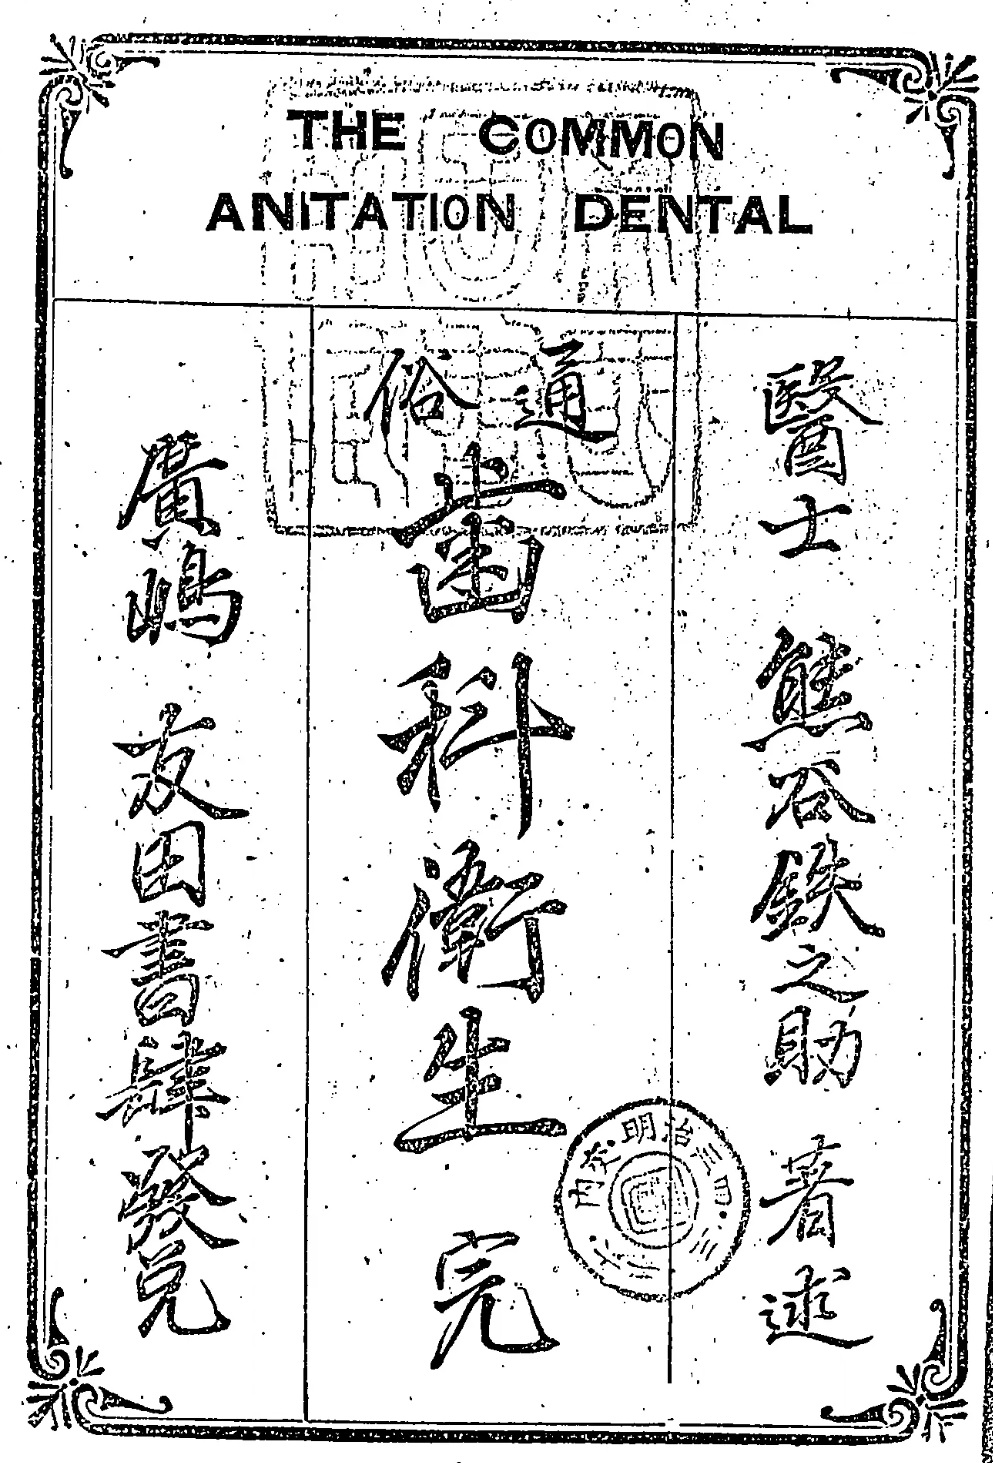 THE COMMON
ANITATION DENTAL
醫士 熊谷鉄之助 著述
通俗
齒科衛生 完
廣嶋 友田書肆發兌
明治三四
内交